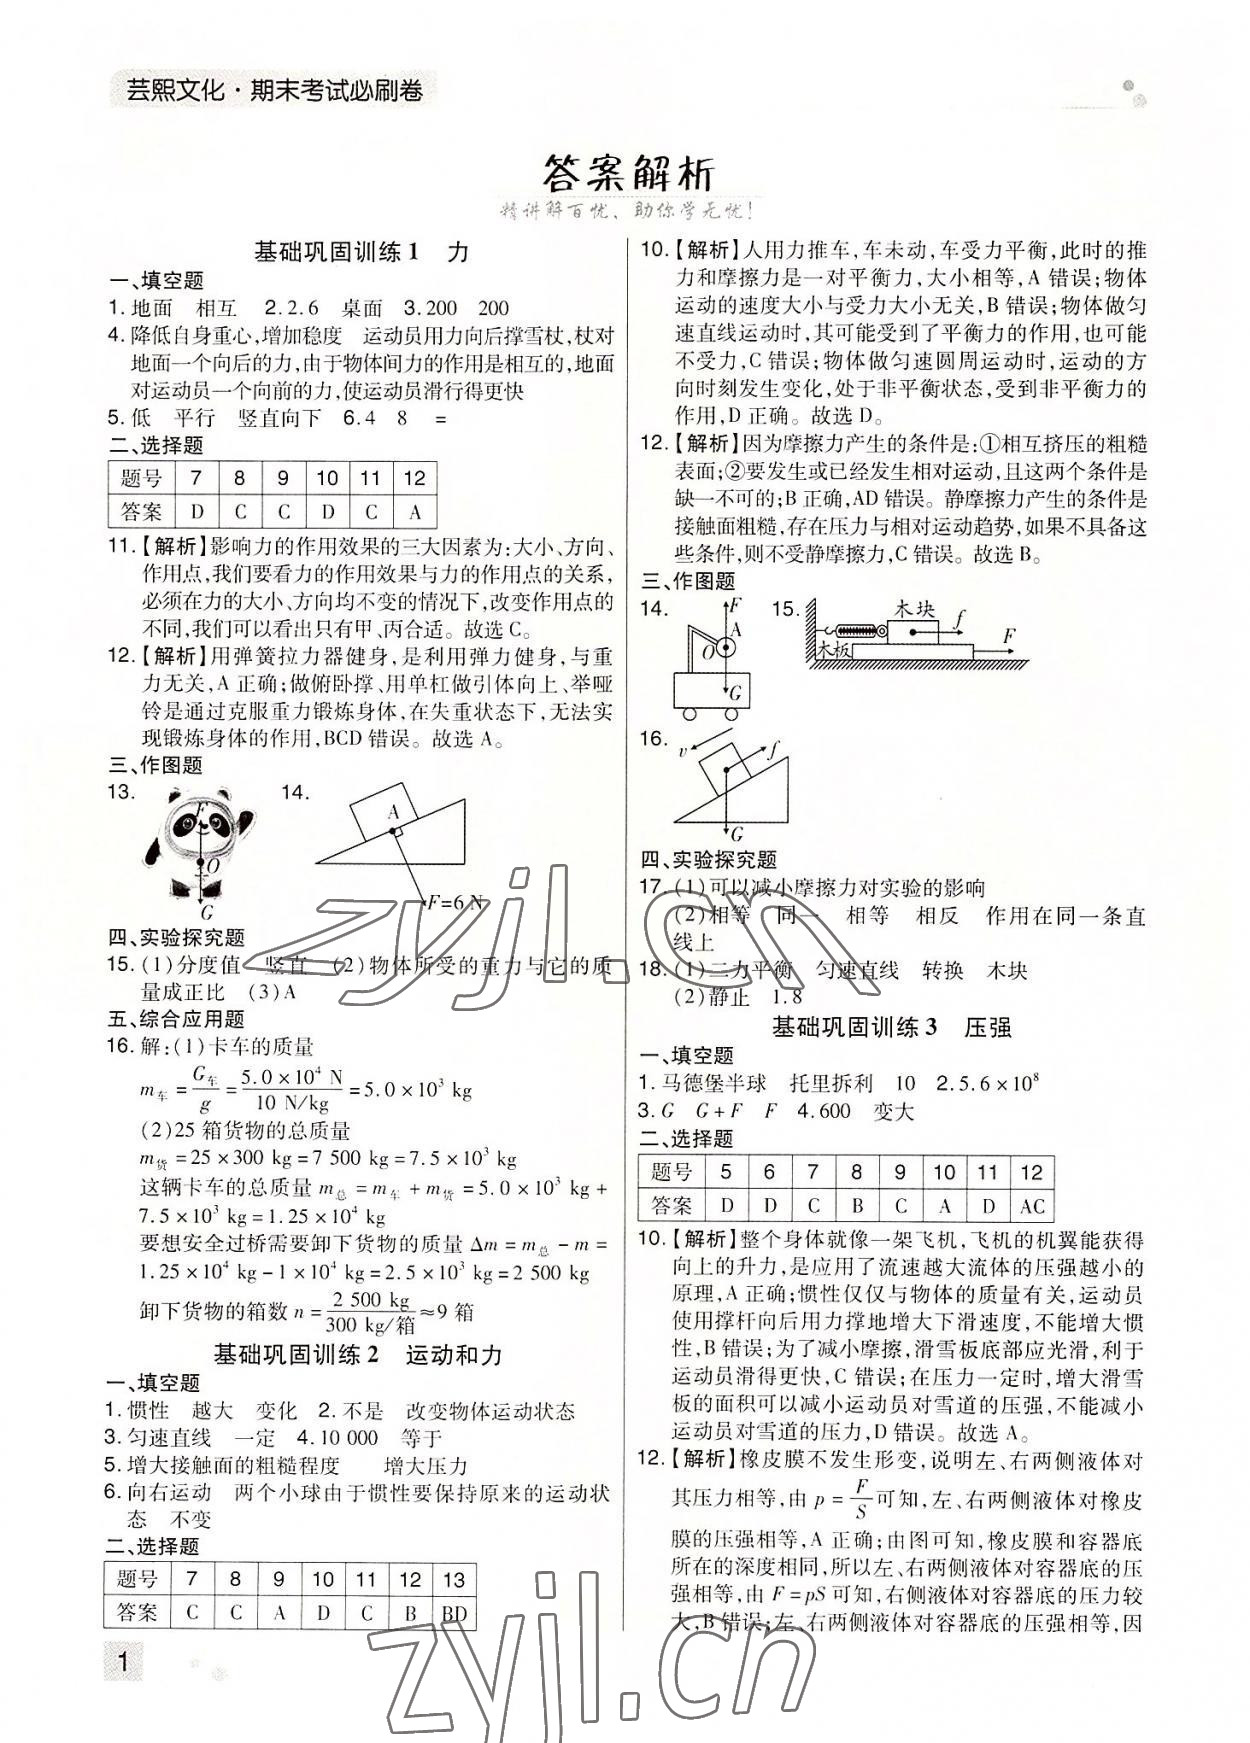 芸熙文化·期末考试必刷卷
答案解析
精讲解百忧、助你学无忧!
基础巩固训练1 力
一、填空题
1.地面 相互 2.2.6 桌面 3.200 200
4.降低自身重心,增加稳度 运动员用力向后撑雪杖,杖对
地面一个向后的力,由于物体间力的作用是相互的,地面
对运动员一个向前的力,使运动员滑行得更快
5.低 平行 竖直向下 6.4 8 =
二、选择题
题号 7 8 9 10 11 12
答案 D C C D C A
11.【解析】影响力的作用效果的三大因素为:大小、方向、
作用点,我们要看力的作用效果与力的作用点的关系,
必须在力的大小、方向均不变的情况下,改变作用点的
不同,我们可以看出只有甲、丙合适。故选C。
12.【解析】用弹簧拉力器健身,是利用弹力健身,与重
力无关,A正确;做俯卧撑、用单杠做引体向上、举哑
铃是通过克服重力锻炼身体,在失重状态下,无法实
现锻炼身体的作用,BCD错误。故选A。
三、作图题
13. F O G 14. A F=6 N
四、实验探究题
15.(1)分度值 竖直 (2)物体所受的重力与它的质
量成正比 (3)A
五、综合应用题
16.解:(1)卡车的质量
m车=G车/g=5.0×10⁴ N/10 N/kg=5.0×10³ kg
(2)25箱货物的总质量
m货=25×300 kg=7 500 kg=7.5×10³ kg
这辆卡车的总质量m总=m车+m货=5.0×10³ kg+
7.5×10³ kg=1.25×10⁴ kg
要想安全过桥需要卸下货物的质量Δm=m总-m=
1.25×10⁴ kg-1×10⁴ kg=2.5×10³ kg=2 500 kg
卸下货物的箱数n=2 500 kg/300 kg/箱≈9箱
基础巩固训练2 运动和力
一、填空题
1.惯性 越大 变化 2.不是 改变物体运动状态
3.匀速直线 一定 4.10 000 等于
5.增大接触面的粗糙程度 增大压力
6.向右运动 两个小球由于惯性要保持原来的运动状
态 不变
二、选择题
题号 7 8 9 10 11 12 13
答案 C C A D C B BD
1
10.【解析】人用力推车,车未动,车受力平衡,此时的推
力和摩擦力是一对平衡力,大小相等,A错误;物体
运动的速度大小与受力大小无关,B错误;物体做匀
速直线运动时,其可能受到了平衡力的作用,也可能
不受力,C错误;物体做匀速圆周运动时,运动的方
向时刻发生变化,处于非平衡状态,受到非平衡力的
作用,D正确。故选D。
12.【解析】因为摩擦力产生的条件是:①相互挤压的粗糙
表面;②要发生或已经发生相对运动,且这两个条件是
缺一不可的;B正确,AD错误。静摩擦力产生的条件是
接触面粗糙,存在压力与相对运动趋势,如果不具备这
些条件,则不受静摩擦力,C错误。故选B。
三、作图题
14. F A O G 15. 木块 f F 木板
16. v f G
四、实验探究题
17.(1)可以减小摩擦力对实验的影响
(2)相等 同一 相等 相反 作用在同一条直
线上
18.(1)二力平衡 匀速直线 转换 木块
(2)静止 1.8
基础巩固训练3 压强
一、填空题
1.马德堡半球 托里拆利 10 2.5.6×10⁸
3.G G+F F 4.600 变大
二、选择题
题号 5 6 7 8 9 10 11 12
答案 D D C B C A D AC
10.【解析】整个身体就像一架飞机,飞机的机翼能获得
向上的升力,是应用了流速越大流体的压强越小的
原理,A正确;惯性仅仅与物体的质量有关,运动员
使用撑杆向后用力撑地增大下滑速度,不能增大惯
性,B错误;为了减小摩擦,滑雪板底部应光滑,利于
运动员滑得更快,C错误;在压力一定时,增大滑雪
板的面积可以减小运动员对雪道的压强,不能减小
运动员对雪道的压力,D错误。故选A。
12.【解析】橡皮膜不发生形变,说明左、右两侧液体对
其压力相等,由p=F/S可知,左、右两侧液体对橡皮
膜的压强相等,A正确;由图可知,橡皮膜和容器底
所在的深度相同,所以左、右两侧液体对容器底的压
强相等,由F=pS可知,右侧液体对容器底的压力较
大,B错误;左、右两侧液体对容器底的压强相等,因
zyjl.cn
zyjl.cn